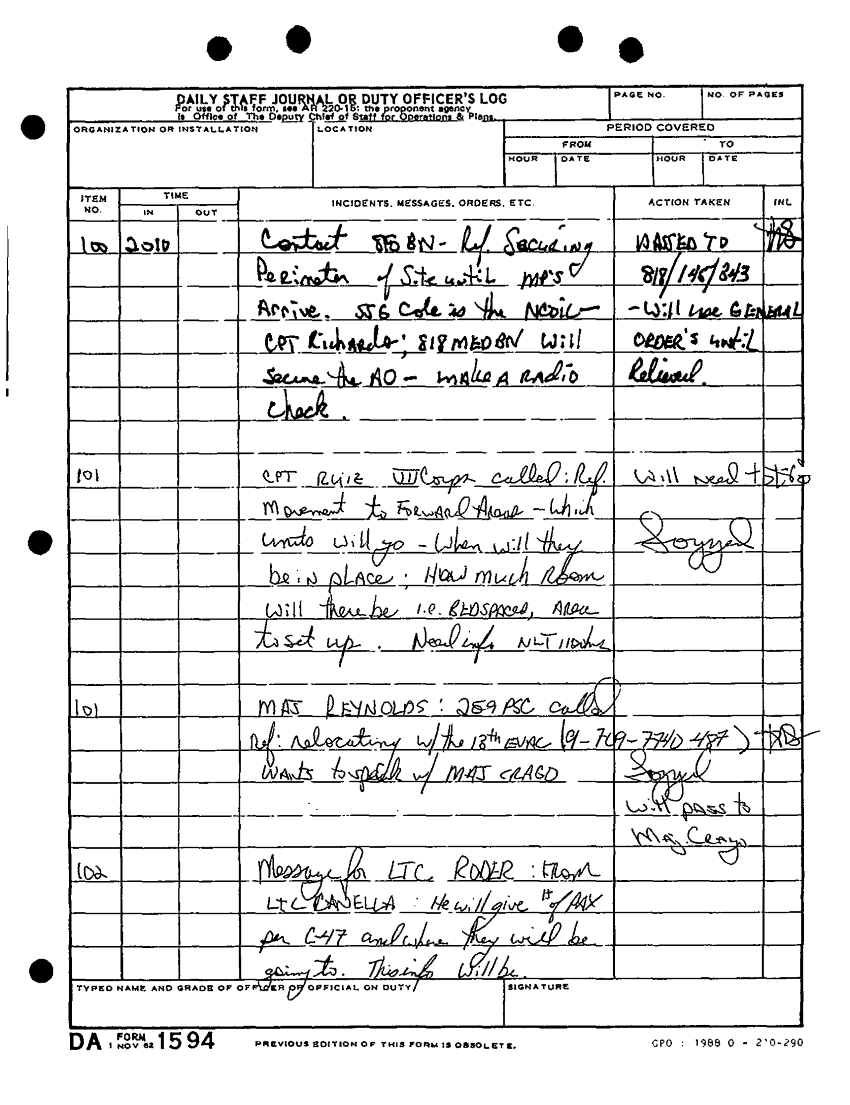 DAILY STAFF JOURNAL OR DUTY OFFICER'S LOG
For use of this form, see AR 220-15; the proponent agency
is Office of The Deputy Chief of Staff for Operations & Plans.
PAGE NO.
NO. OF PAGES
ORGANIZATION OR INSTALLATION
LOCATION
PERIOD COVERED
FROM
TO
HOUR
DATE
HOUR
DATE
ITEM NO.
TIME
IN
OUT
INCIDENTS, MESSAGES, ORDERS, ETC.
ACTION TAKEN
INL
100 2010 Contact BN - Ref. Securing PASSED TO
Perimeter of Site until MP's 818/146/343
Arrive. SSG Cole is the NCOIC - - Will use GENERAL
CPT Richards; 818 MED BN Will ORDER'S until
Secure the AO - MAKE A RADIO Relieved.
Check.
101 CPT RUIZ VII Corps called: Ref. Will need
Movement to Forward Areas - Which
units will go - When will they
be in place; How much Room
will there be i.e. BEDSPACES, AREA
to set up. Need info NLT 1100hrs
101 MAJ REYNOLDS: 259 PSC called
Ref: relocating w/ the 13th EVAC (9-769-7740-487)
WANTS to speak w/ MAJ CRAGO
Will pass to
Maj. Crago
102 Message for LTC. RODER: From
LTC CANELLA: He will give # of PAX
per C-47 and where they will be
going to. This info Will be
TYPED NAME AND GRADE OF OFFICER OR OFFICIAL ON DUTY
SIGNATURE
DA FORM 1 NOV 62 1594
PREVIOUS EDITION OF THIS FORM IS OBSOLETE.
GPO : 1988 O - 210-290